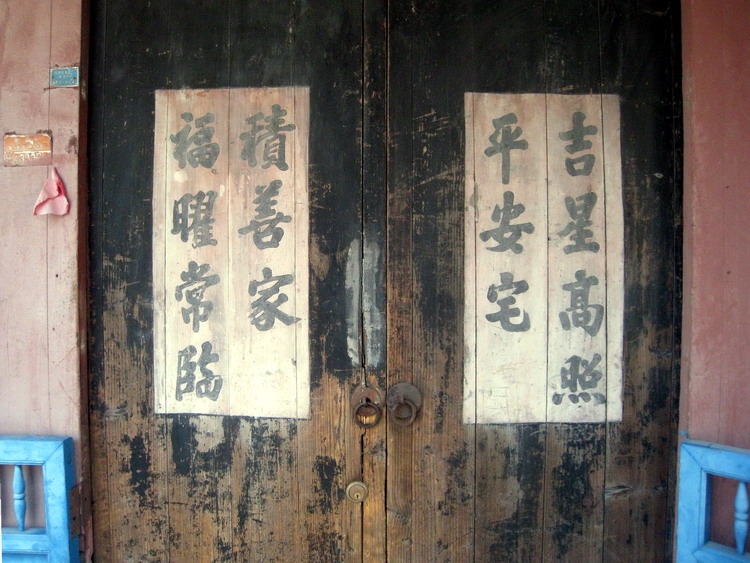 吉星高照
平安宅
福曜常臨
積善家